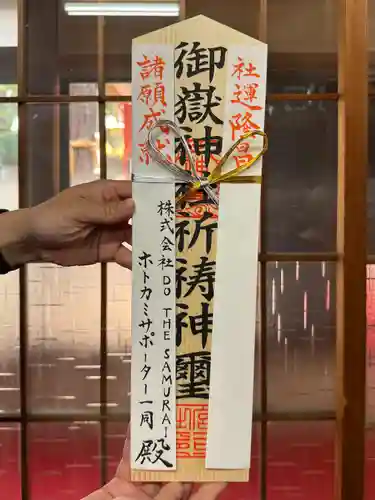 社運隆昌
御嶽神社祈祷神璽
諸願成就
株式会社DO THE SAMURAI
ホトカミサポーター一同
殿